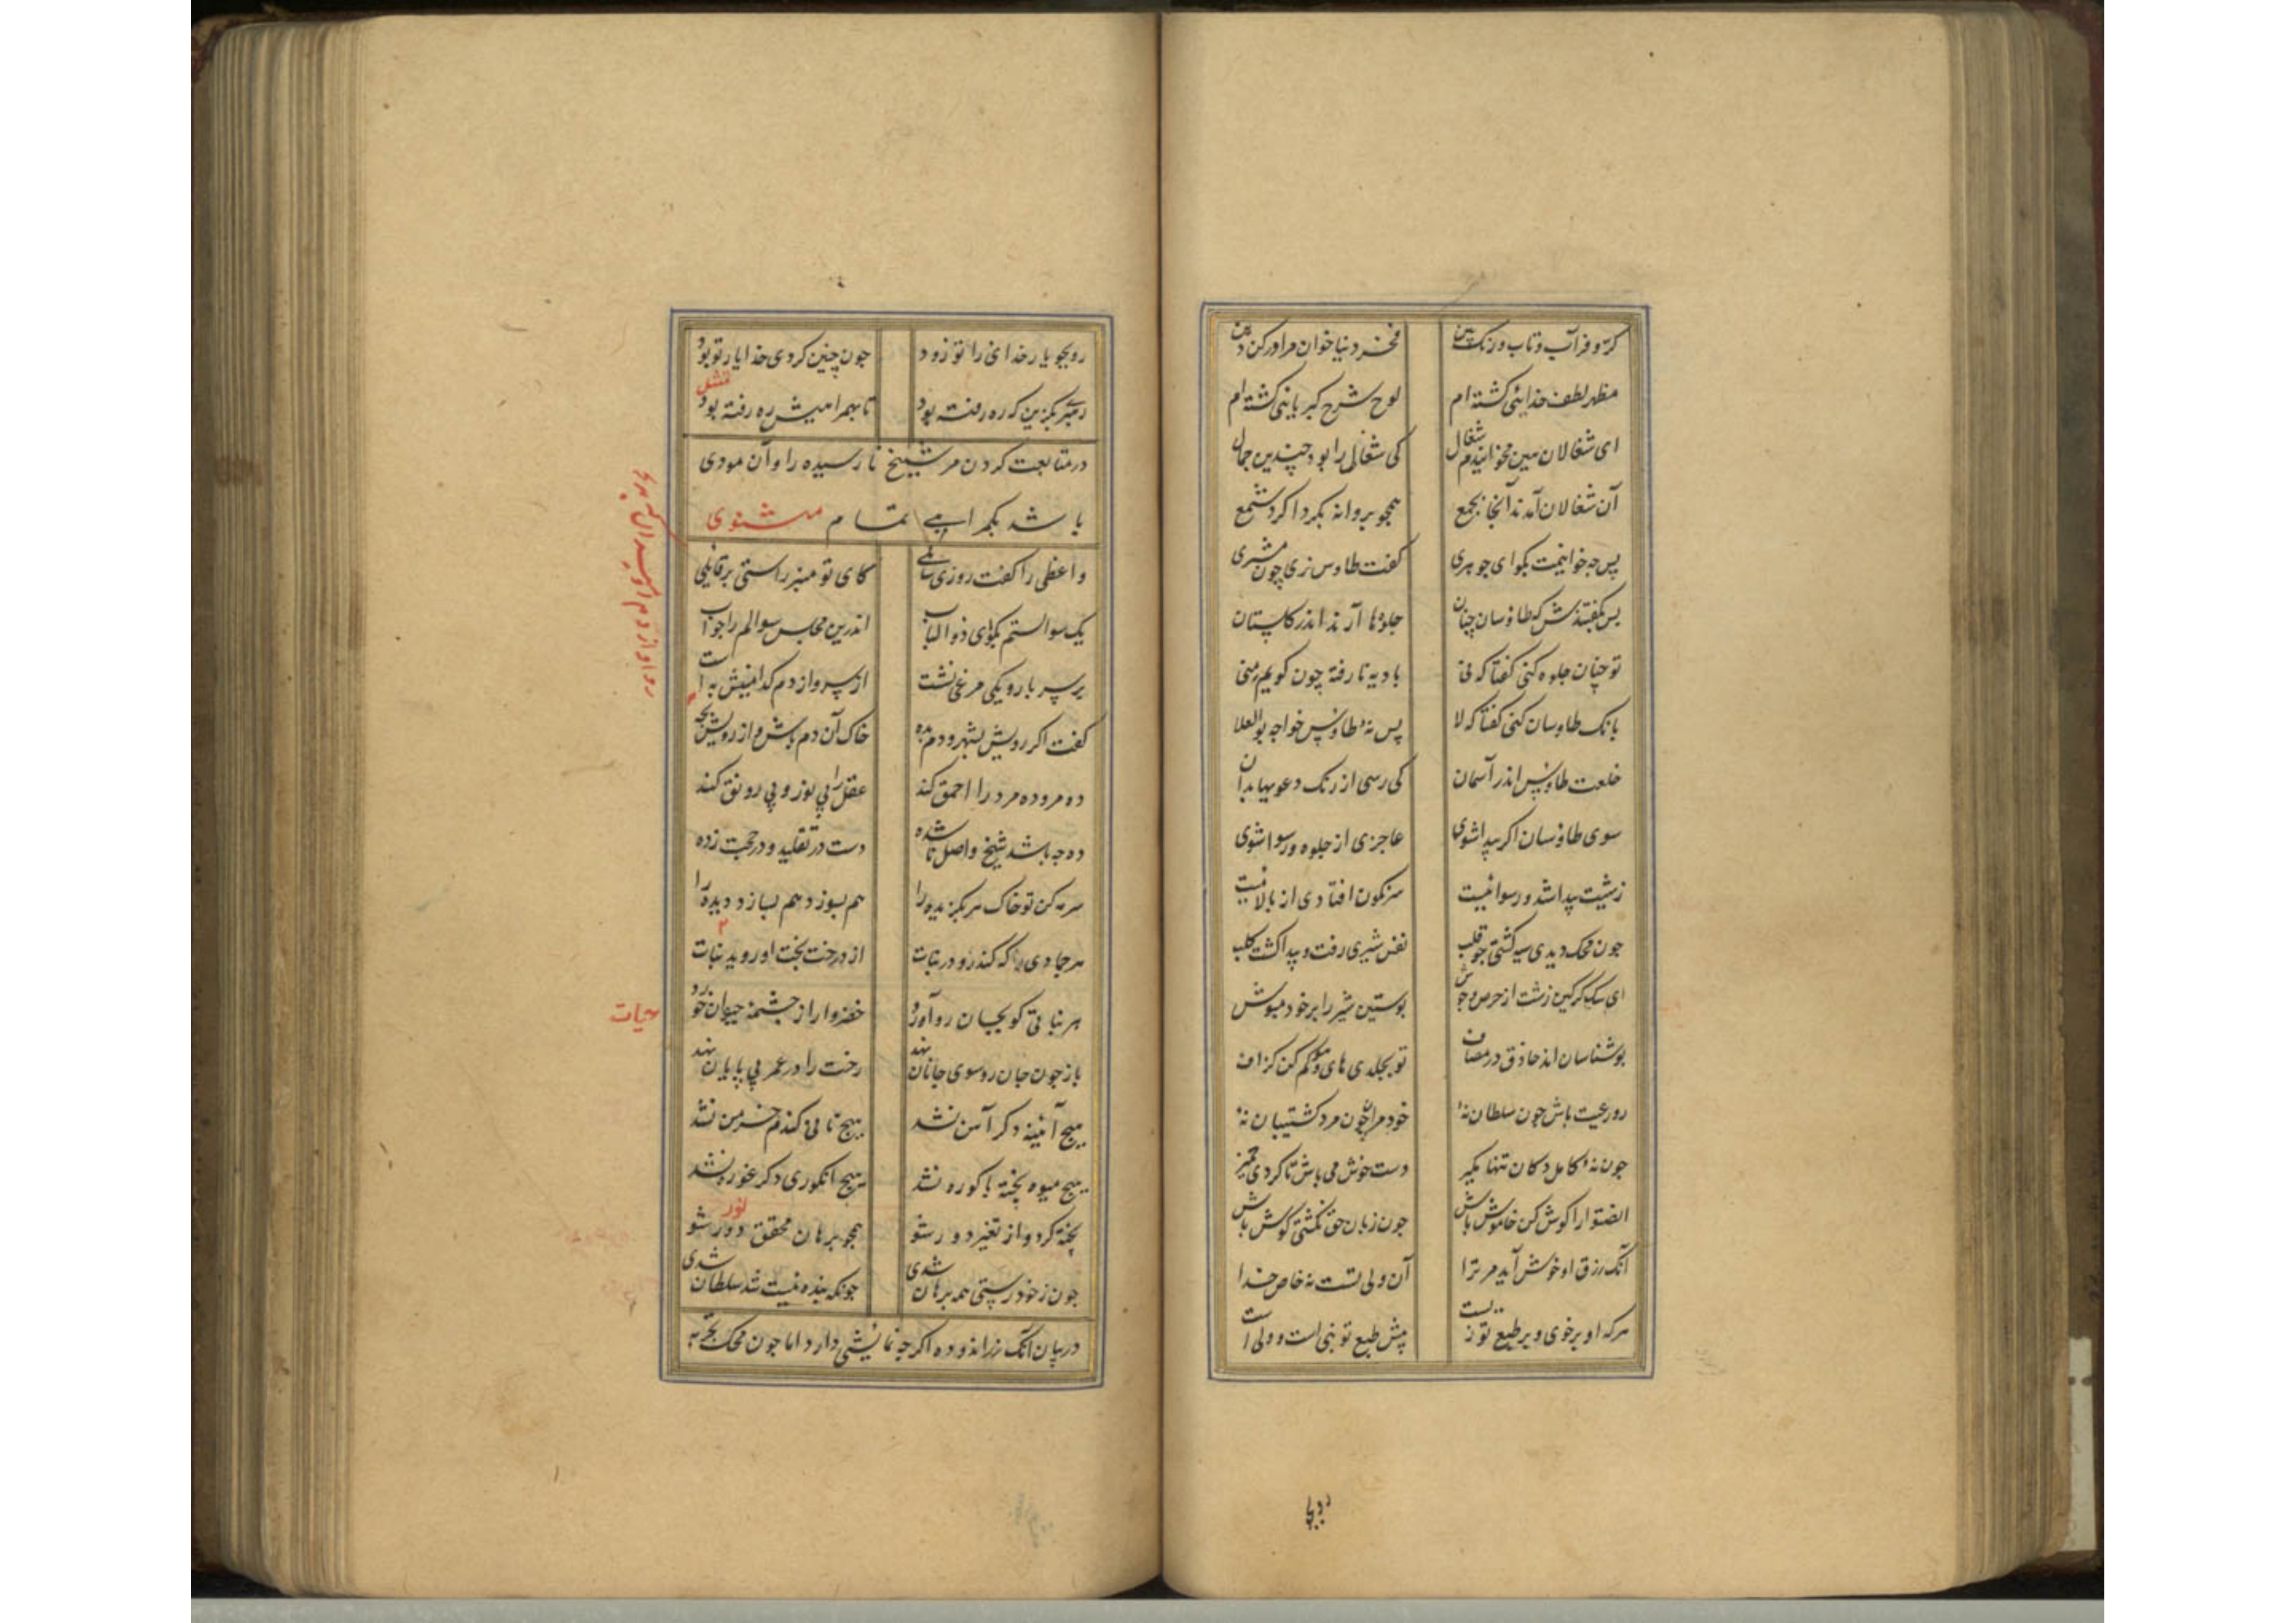 کرّ و فر آب و تاب و رنک بین فخر دنیا خوان مرا و رکن دین
مظهر لطف خدائی کشته‌ام لوح شرح کبریائی کشته‌ام
ای شغالان هین مخوانیدم شغال کی شغالی را بود چندین جمال
آن شغالان آمدند آنجا بجمع همچو پروانه بکرداکرد شمع
پس چه خوانیمت بکو ای جوهری کفت طاوس نری چون مشتری
پس بکفتندش که طاوسان جنان جلوها آرند اندر کلستان
تو چنان جلوه کنی کفتا که نی بادیه نارفته چون کویم منی
بانک طاوسان کنی کفتا که لا پس نهٔ طاوس خواجه بوالعلا
خلعت طاوس اندر آسمان کی رسی از رنک دعویها بدان
سوی طاوسان اکر پیدا شوی عاجزی از جلوه و رسوا شوی
زشتیت پیدا شد و رسوائیت سرنکون افتادی از بالائیت
چون محک دیدی سیه کشتی چو قلب نقش شیری رفت و پیدا کشت کلب
ای سک کرکین زشت از حرص و جوش پوستین شیر را بر خود مپوش
رو رعیت باش چون سلطان نهٔ خود مران چون مرد کشتیبان نهٔ
چون نهٔ کامل دکان تنها مکیر دست خوش می باش تا کردی خمیر
انصتوا را کوش کن خاموش باش چون زبان حق نکشتی کوش باش
آنک زرق او خوش آید مر ترا آن ولی تست نه خاص خدا
هرکه او بر خوی و بر طبع تو زیست پیش طبع تو نبی است و ولی است
رو بجو یار خدائی را تو زود چون چنین کردی خدا یار تو بود
رهبر بکزین که ره رفته بود تا بهمراهیش ره رفته بود
در متابعت کردن مر شیخ نارسیده را و آن مودی
باشد بکمراهی تمام مثنوی
واعظی را کفت روزی سائلی کای تو منبر را سنی‌تر قائلی
یک سوالستم بکو ای ذو الباب اندرین مجلس سوالم را جواب
بر سر بارو یکی مرغی نشست از سر و از دم کدامینش به است
کفت اکر رویش بشهر و دم بده خاک آن دم باش و از رویش بجه
ده مرو ده مرد را احمق کند عقل را بی نور و بی رونق کند
ده چه باشد شیخ واصل ناشده دست در تقلید و در حجت زده
سرمه کن تو خاک هر بکزیده را هم بسوزد هم بسازد دیده را
هر جمادی را که کند رو در نبات از درخت بخت او روید نبات
هر نباتی کو بجان رو آورد خضروار از چشمهٔ حیوان خورد
حیات
باز چون جان رو سوی جانان نهد رخت را در عمر بی پایان نهد
هیچ آئینه دکر آهن نشد هیچ نانی کندم خرمن نشد
هیچ انکوری دکر غوره نشد هیچ میوه پخته باکوره نشد
پخته کرد و از تغیر دور شو همچو برهان محقق نور شو
چون ز خود رستی همه برهان شدی چونکه بنده نیست شد سلطان شدی
در بیان آنک زراندوده اکرچه نمایشی دارد اما چون محک تجربه